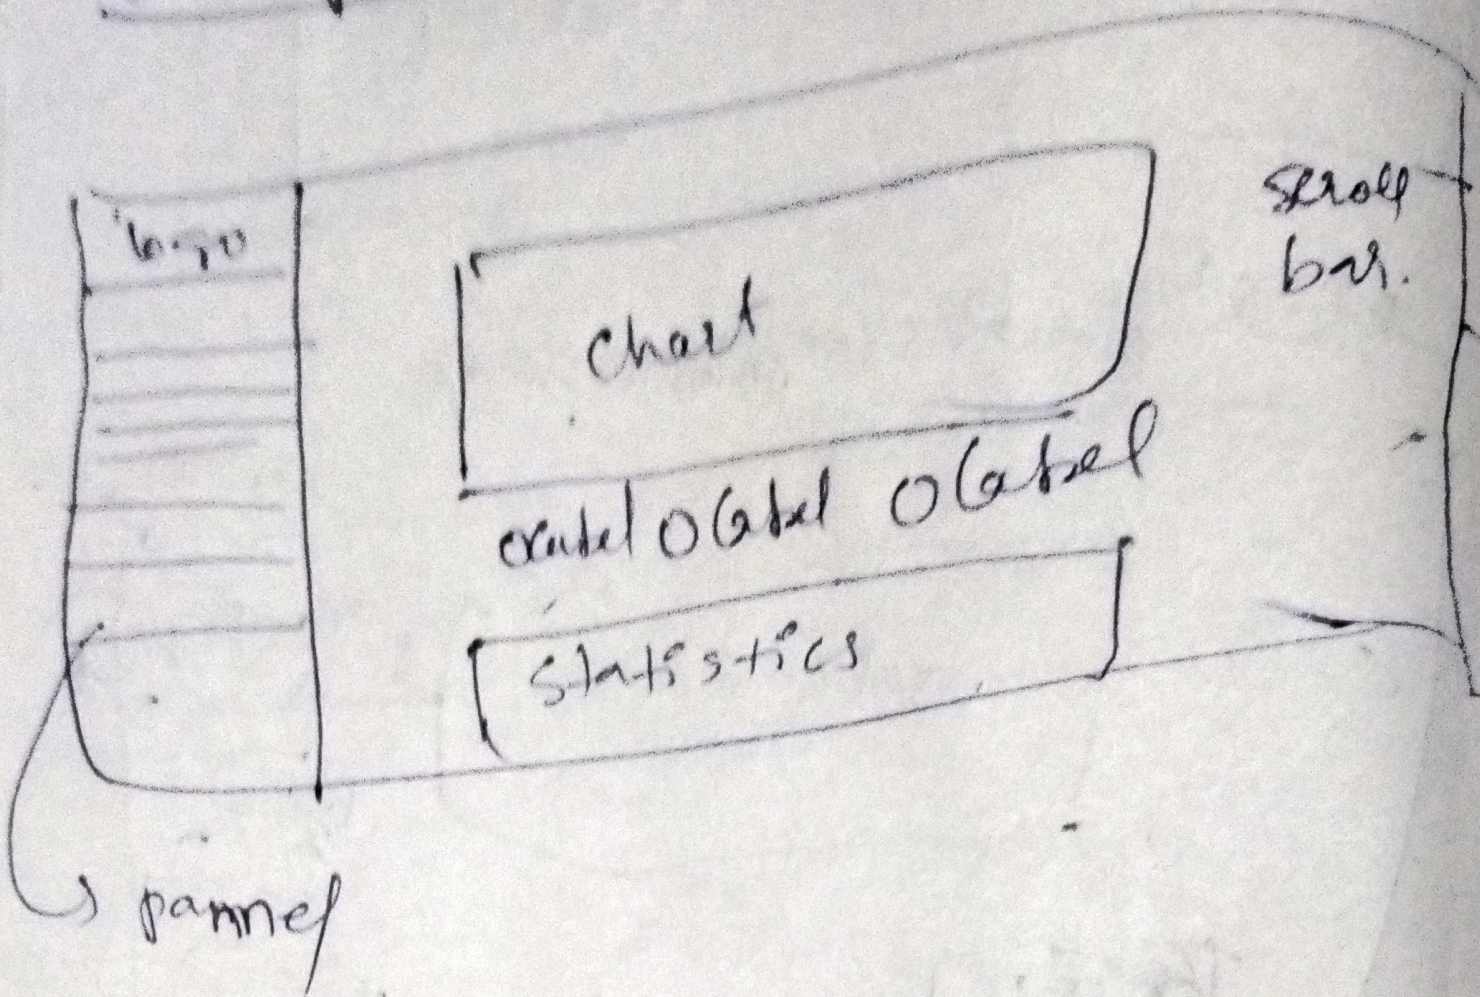 logo
scroll
bar.
chart
O label O label
statistics
pannel